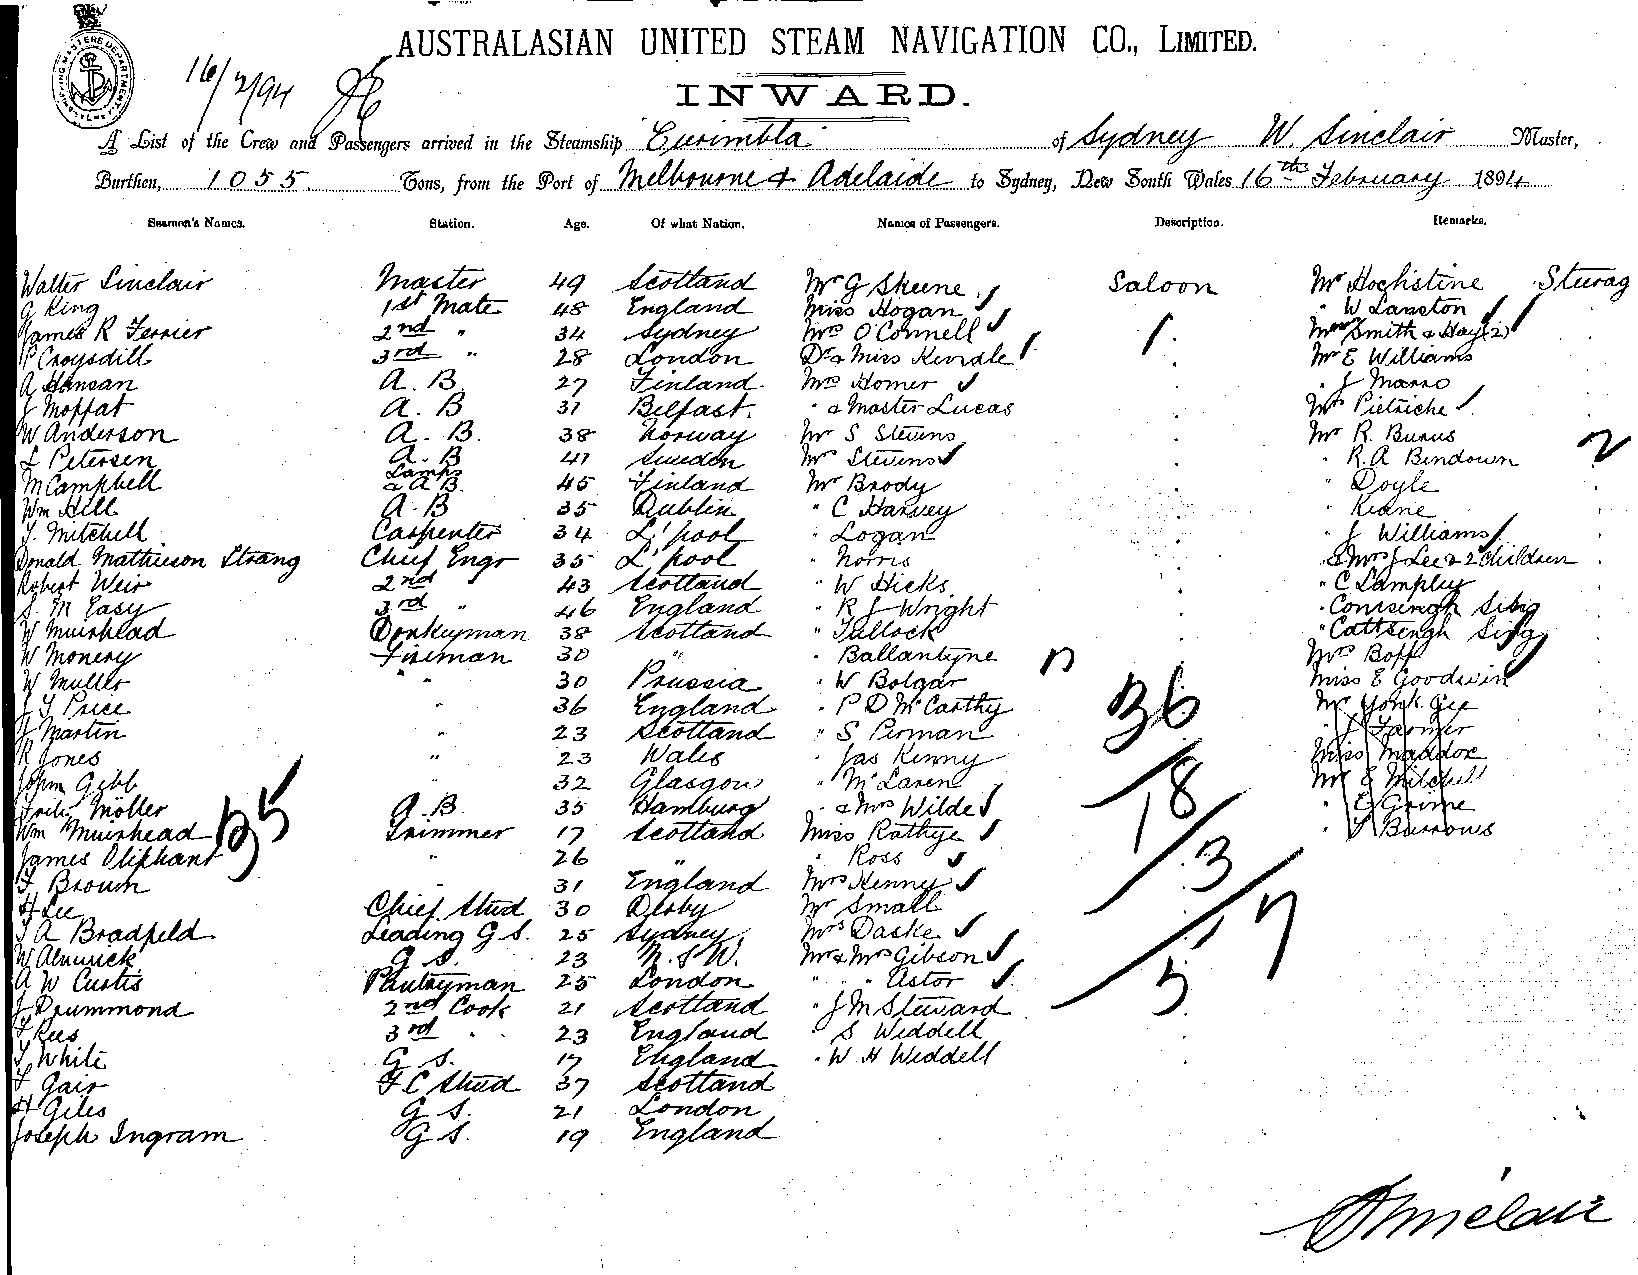 AUSTRALASIAN UNITED STEAM NAVIGATION CO., LIMITED.
16/2/94
INWARD.
A List of the Crew and Passengers arrived in the Steamship Eurimbla of Sydney W. Sinclair Master,
Burthen, 1055 Tons, from the Port of Melbourne & Adelaide to Sydney, New South Wales 16th February 1894
Seamen's Names. Station. Age. Of what Nation. Names of Passengers. Description. Remarks.
Walter Sinclair Master 49 Scotland Mr G Skeene Saloon Mr Hochstine Sturag
G King 1st Mate 48 England Miss Hogan " W Langton
James R Ferrier 2nd " 34 Sydney Mrs O'Connell Smith & Hay (2)
P Croysdill 3rd " 28 London Dr & Miss Kendle Mr E Williams
A Hansan A. B. 27 Finland Mrs Homer " J Marro
J Moffat A. B 31 Belfast " & Master Lucas Mrs Pietriche
W Anderson A. B. 38 Norway Mr S Stevens Mr R. Burns 2
L Petersen A. B 41 Sweden Mrs Stevens " R. A Bendown
M Campbell Lamps & A B. 45 Finland Mr Brody " Doyle
Wm Hill A. B 35 Dublin " C Harvey " Keane
J. Mitchell Carpenter 34 L'pool " Logan " J Williams
Donald Mathieson Strang Chief Engr 35 L'pool " Norris & Mrs J Lee & 2 Children
Robert Weir 2nd 43 Scotland " W Hicks " C Lampley
S. M Easy 3rd " 46 England " R J Wright
W Muirhead Donkeyman 38 Scotland " Tullock
W Monery Fireman 30 " " Ballantyne Mrs Boff
W Muller " " 30 Prussia " W Bolgar Miss E Goodwin
J T Price " 36 England " P D McCarthy 36 Mr York Gee
J Martin " 23 Scotland " S Perman " J Farmer
R Jones " 23 Wales " Jas Kenny Miss Maddox
John Gibb " 32 Glasgow " McLaren 18 Mr E Mitchell
Möller A. B. 35 Hamburg " & Mrs Wilde " E Grime
Wm Muirhead 35 Trimmer 17 Scotland Miss Rathye " Burrows
James Oliphant " 26 " " Ross 3
J Brown " 31 England Mrs Henney
H Lee Chief Stud 30 Derby Mr Small 17
J A Bradfield Leading G S. 25 Sydney Mrs Daske
W Alnwick G S. 23 N. S. W. Mr & Mrs Gibson
A W Curtis Pantryman 25 London " " Astor 5
J Drummond 2nd Cook 21 Scotland " J M Steward
J Rees 3rd " 23 England " S Weddell
J White G S. 17 England " W H Weddell
J Gair F C Stud 37 Scotland
H Giles G S. 21 London
Joseph Ingram G S. 19 England
W Sinclair